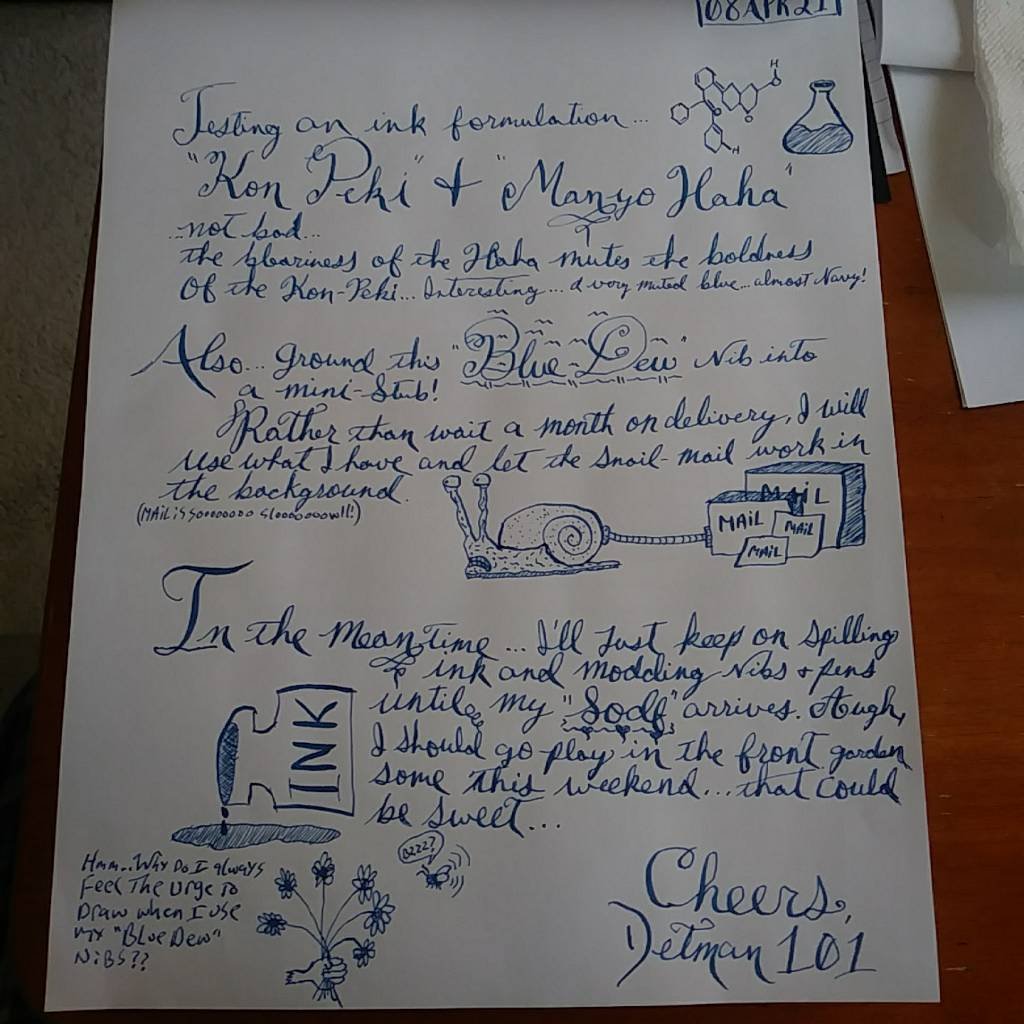 08APR21
Testing an ink formulation...
"Kon Peki" + "Manyo Haha"
...not bad...
the bluriness of the Haha mutes the boldness
Of the Kon-Peki... Interesting... a very muted blue... almost Navy!
Also... ground this "Blue-Dew" Nib into
a mini-Stub!
Rather than wait a month on delivery, I will
use what I have and let the snail-mail work in
the background.
(MAiL is sooooooo slooooooow!!!)
MAiL
MAiL
MAiL
MAiL
In the meantime... I'll just keep on spilling
ink and modding Nibs + pens
until my "Sodf" arrives. Though,
I should go play in the front garden
some this weekend... that could
be sweet...
INK
BZZZ?
Hmm... Why Do I always
Feel The Urge To
Draw when I use
my "Blue Dew"
NiBS??
H
H
Cheers,
Detman 101